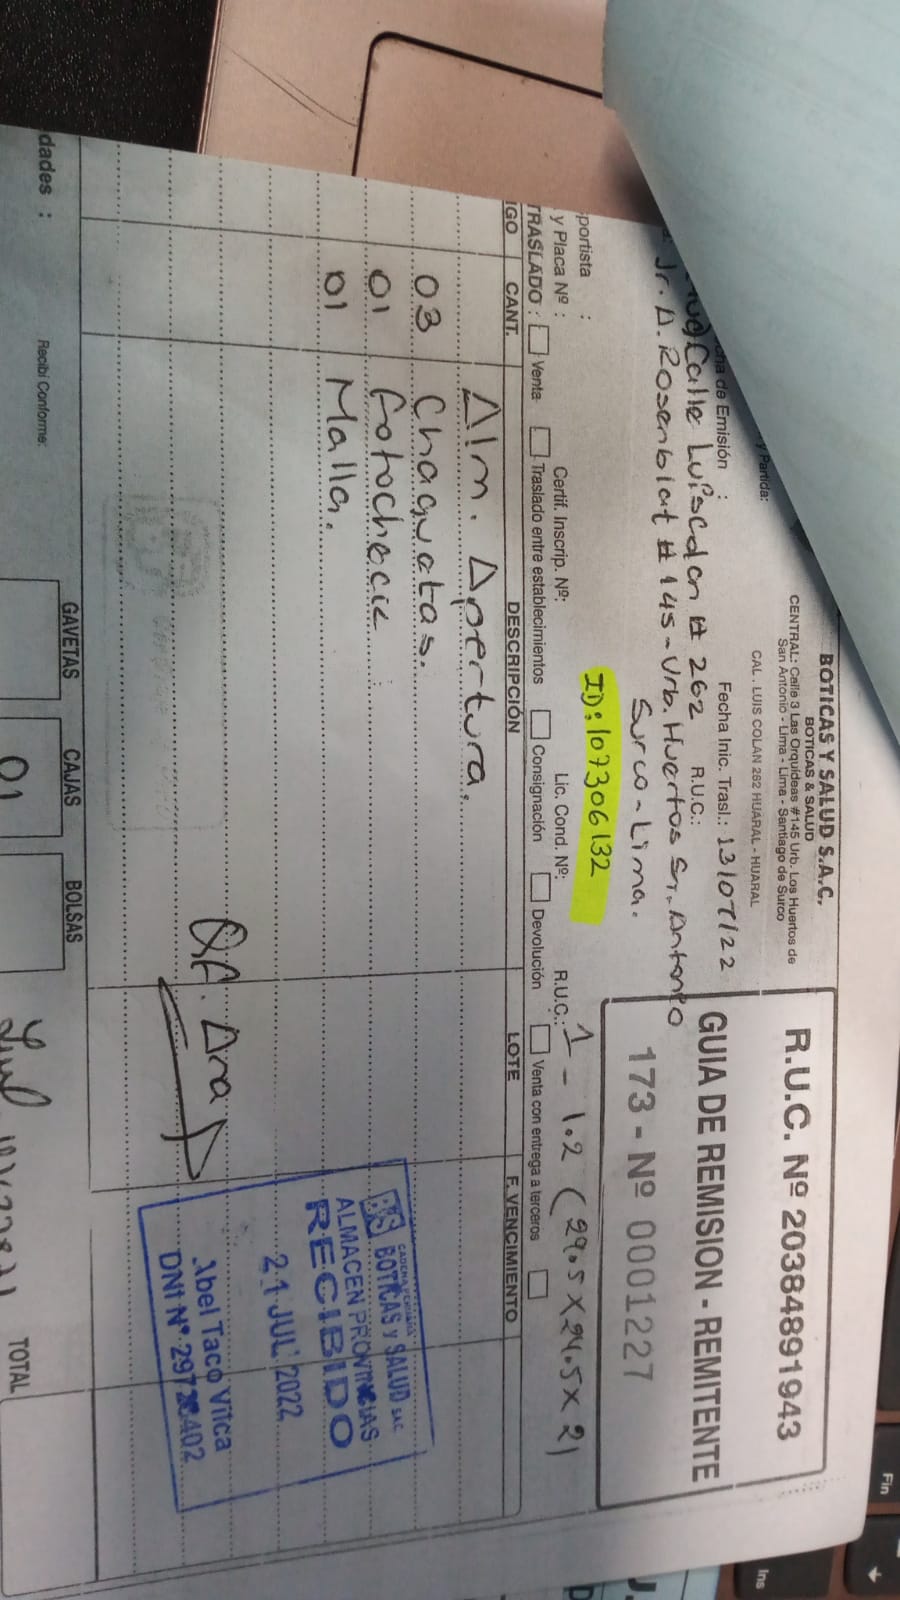 BOTICAS Y SALUD S.A.C.
BOTICAS & SALUD
CENTRAL: Calle 3 Las Orquideas #145 Urb. Los Huertos de
San Antonio - Lima - Lima - Santiago de Surco
CAL. LUIS COLAN 262 HUARAL - HUARAL
R.U.C. Nº 20384891943
GUIA DE REMISION - REMITENTE
173 - Nº 0001227
y Partida:
de Emisión :
Fecha Inic. Trasl.: 13/07/22
Calle Luis Colan # 262 R.U.C.:
Jr. A. Rosenblat # 145 - Urb. Huertos Sn. Antonio
Surco - Lima.
ID: 107306132
portista :
y Placa Nº : Certif. Inscrip. Nº: Lic. Cond. Nº: R.U.C.:
1 - 1.2 (29.5 X 24.5 X 21
TRASLADO : Venta Traslado entre establecimientos Consignación Devolución Venta con entrega a terceros
IGO CANT. DESCRIPCIÓN LOTE F. VENCIMIENTO
Alm. Apertura.
03 Chaquetas.
01 fotocheck
01 Malla.
QF. Ara
CADENA PERUANA
BS BOTICAS y SALUD SAC
ALMACEN PROVINCIAS
RECIBIDO
21 JUL 2022
Abel Taco Vilca
DNI Nº
dades :
Recibí Conforme:
GAVETAS CAJAS BOLSAS TOTAL
01
Fin
Ins